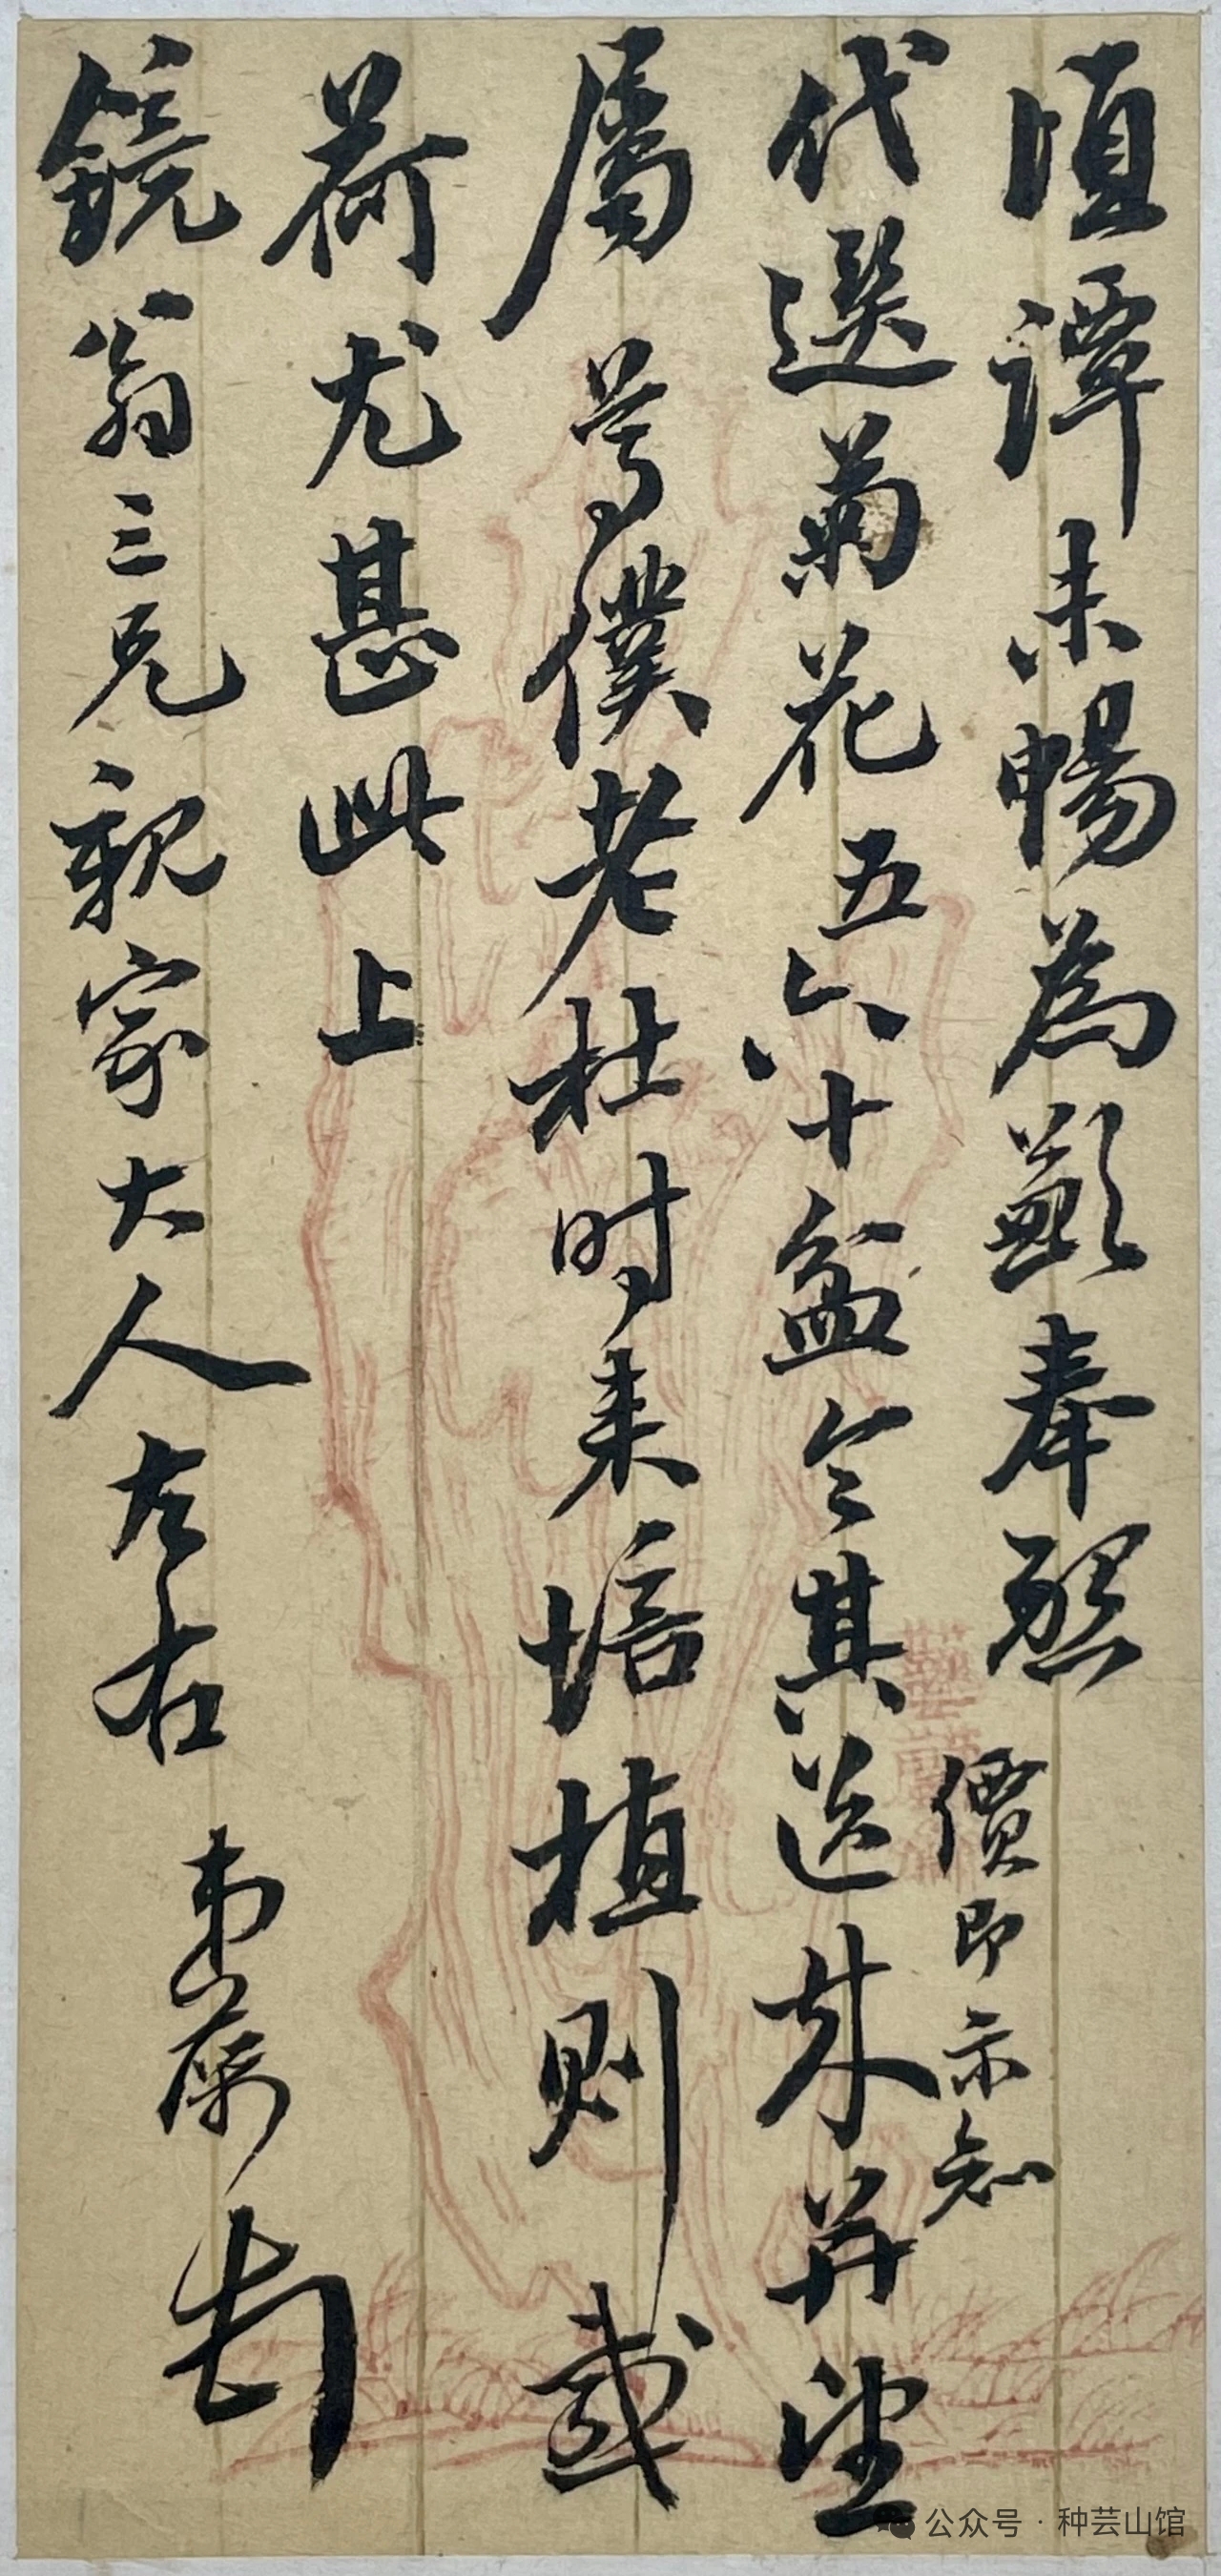 頃譚未暢為歉奉懇
價即示知
代選菊花五六十盆令其送来并望
屬尊僕老杜时来培植則感
荷尤甚此上
鏡翁三兄親家大人左右 弟
公众号 · 种芸山馆